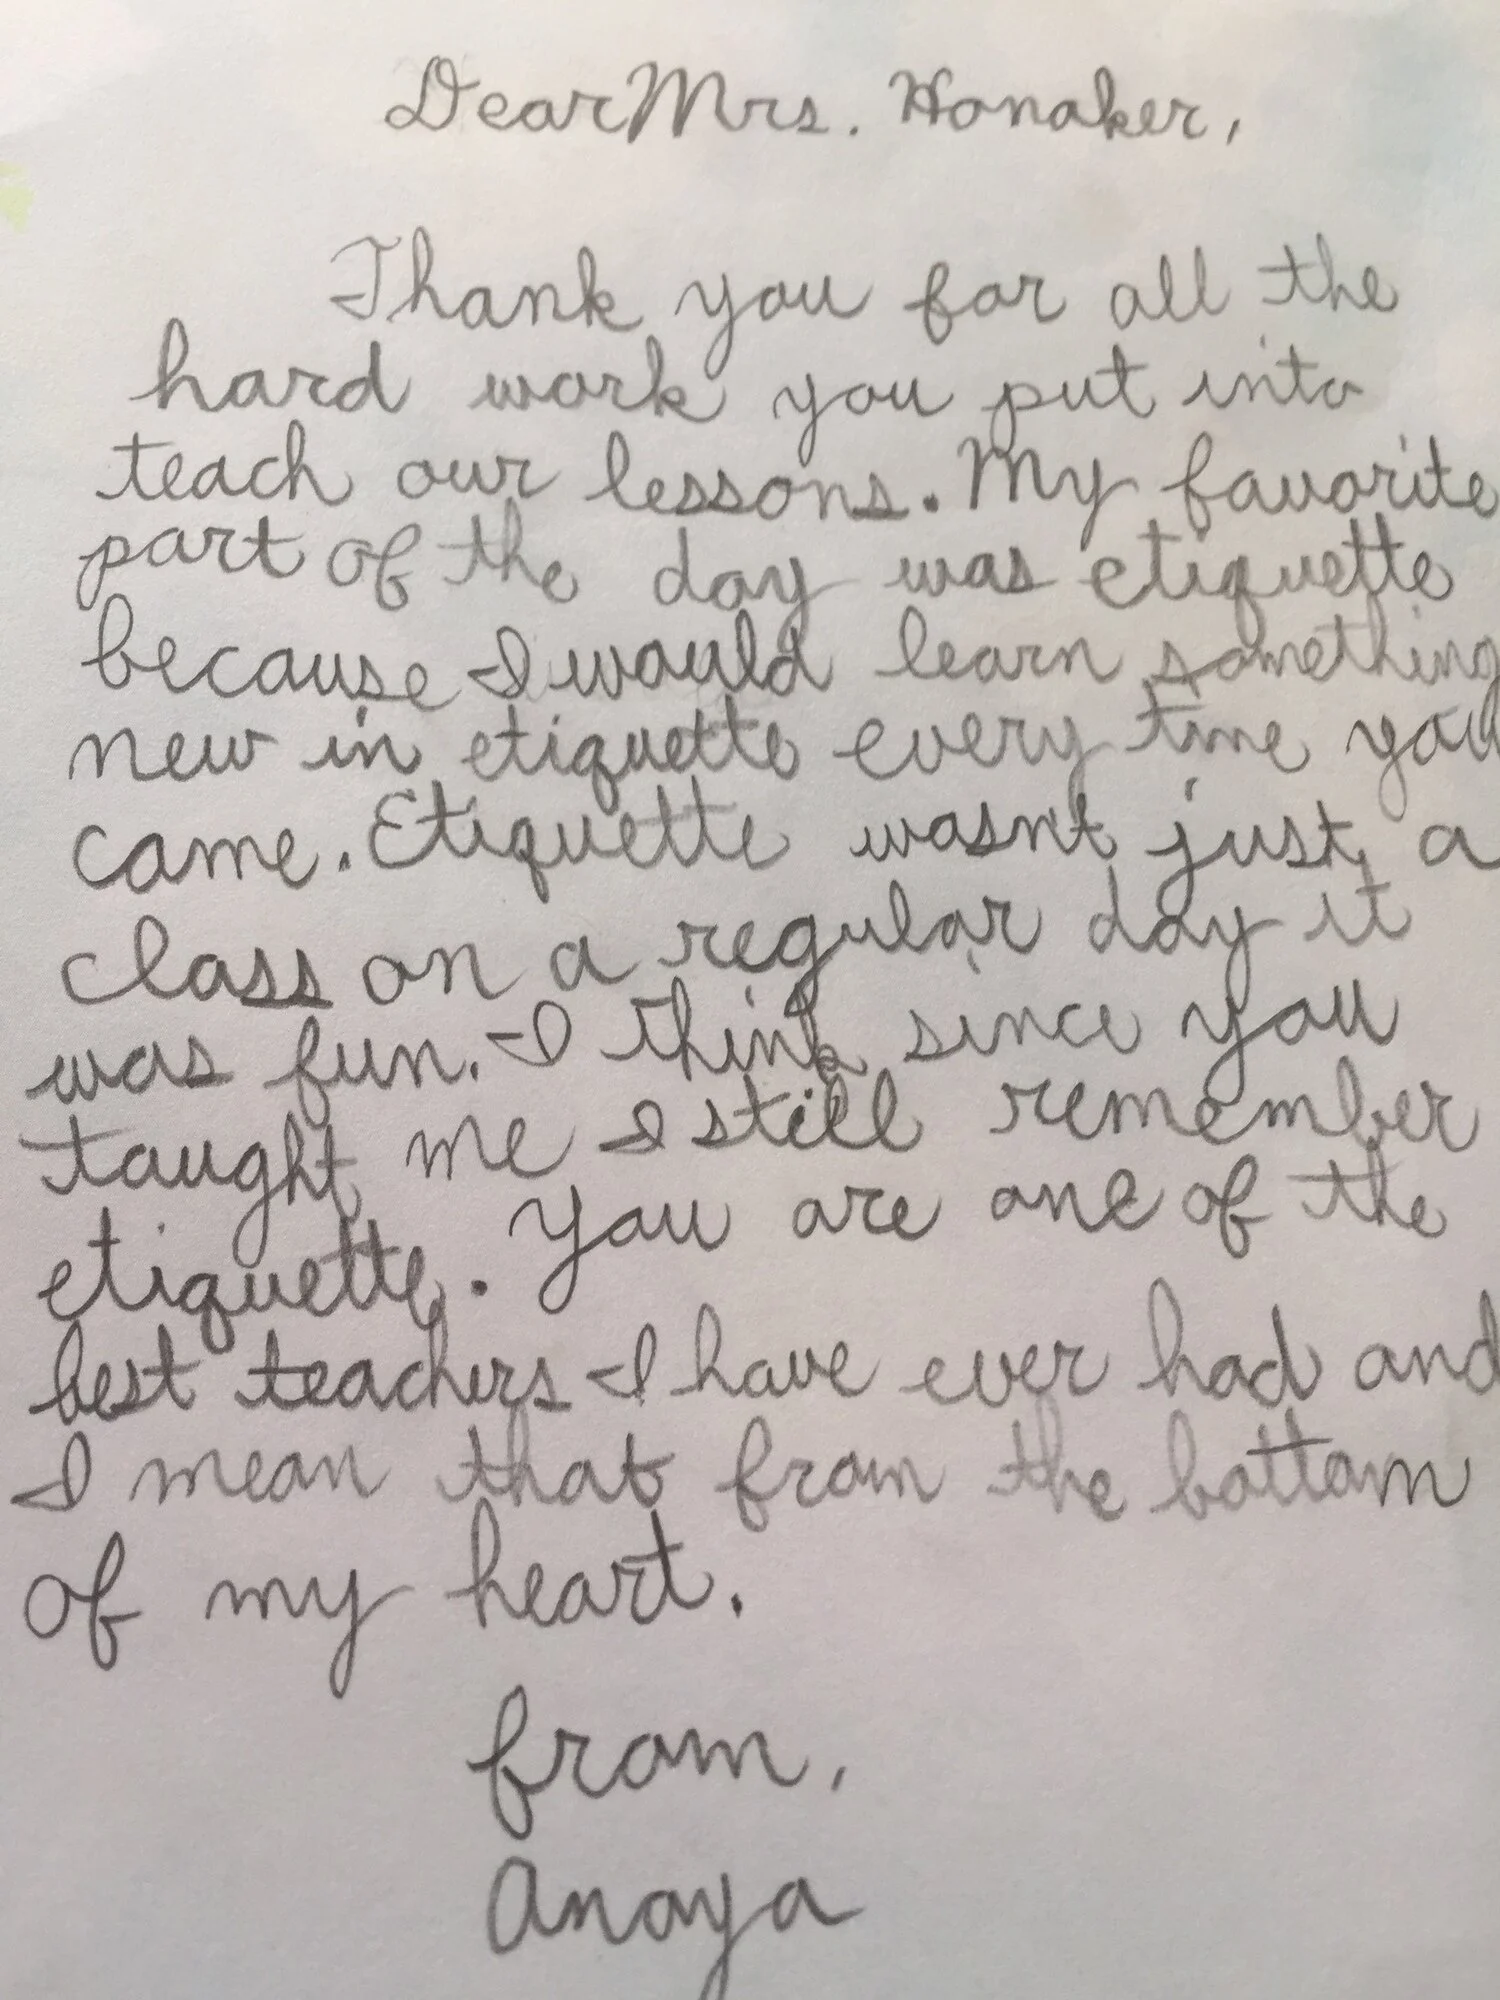 Dear Mrs. Honaker,
Thank you for all the
hard work you put into
teach our lessons. My favorite
part of the day was etiquette
because I would learn something
new in etiquette every time you
came. Etiquette wasn't just a
class on a regular day it
was fun. I think since you
taught me I still remember
etiquette. You are one of the
best teachers I have ever had and
I mean that from the bottom
of my heart.
from,
Anaya